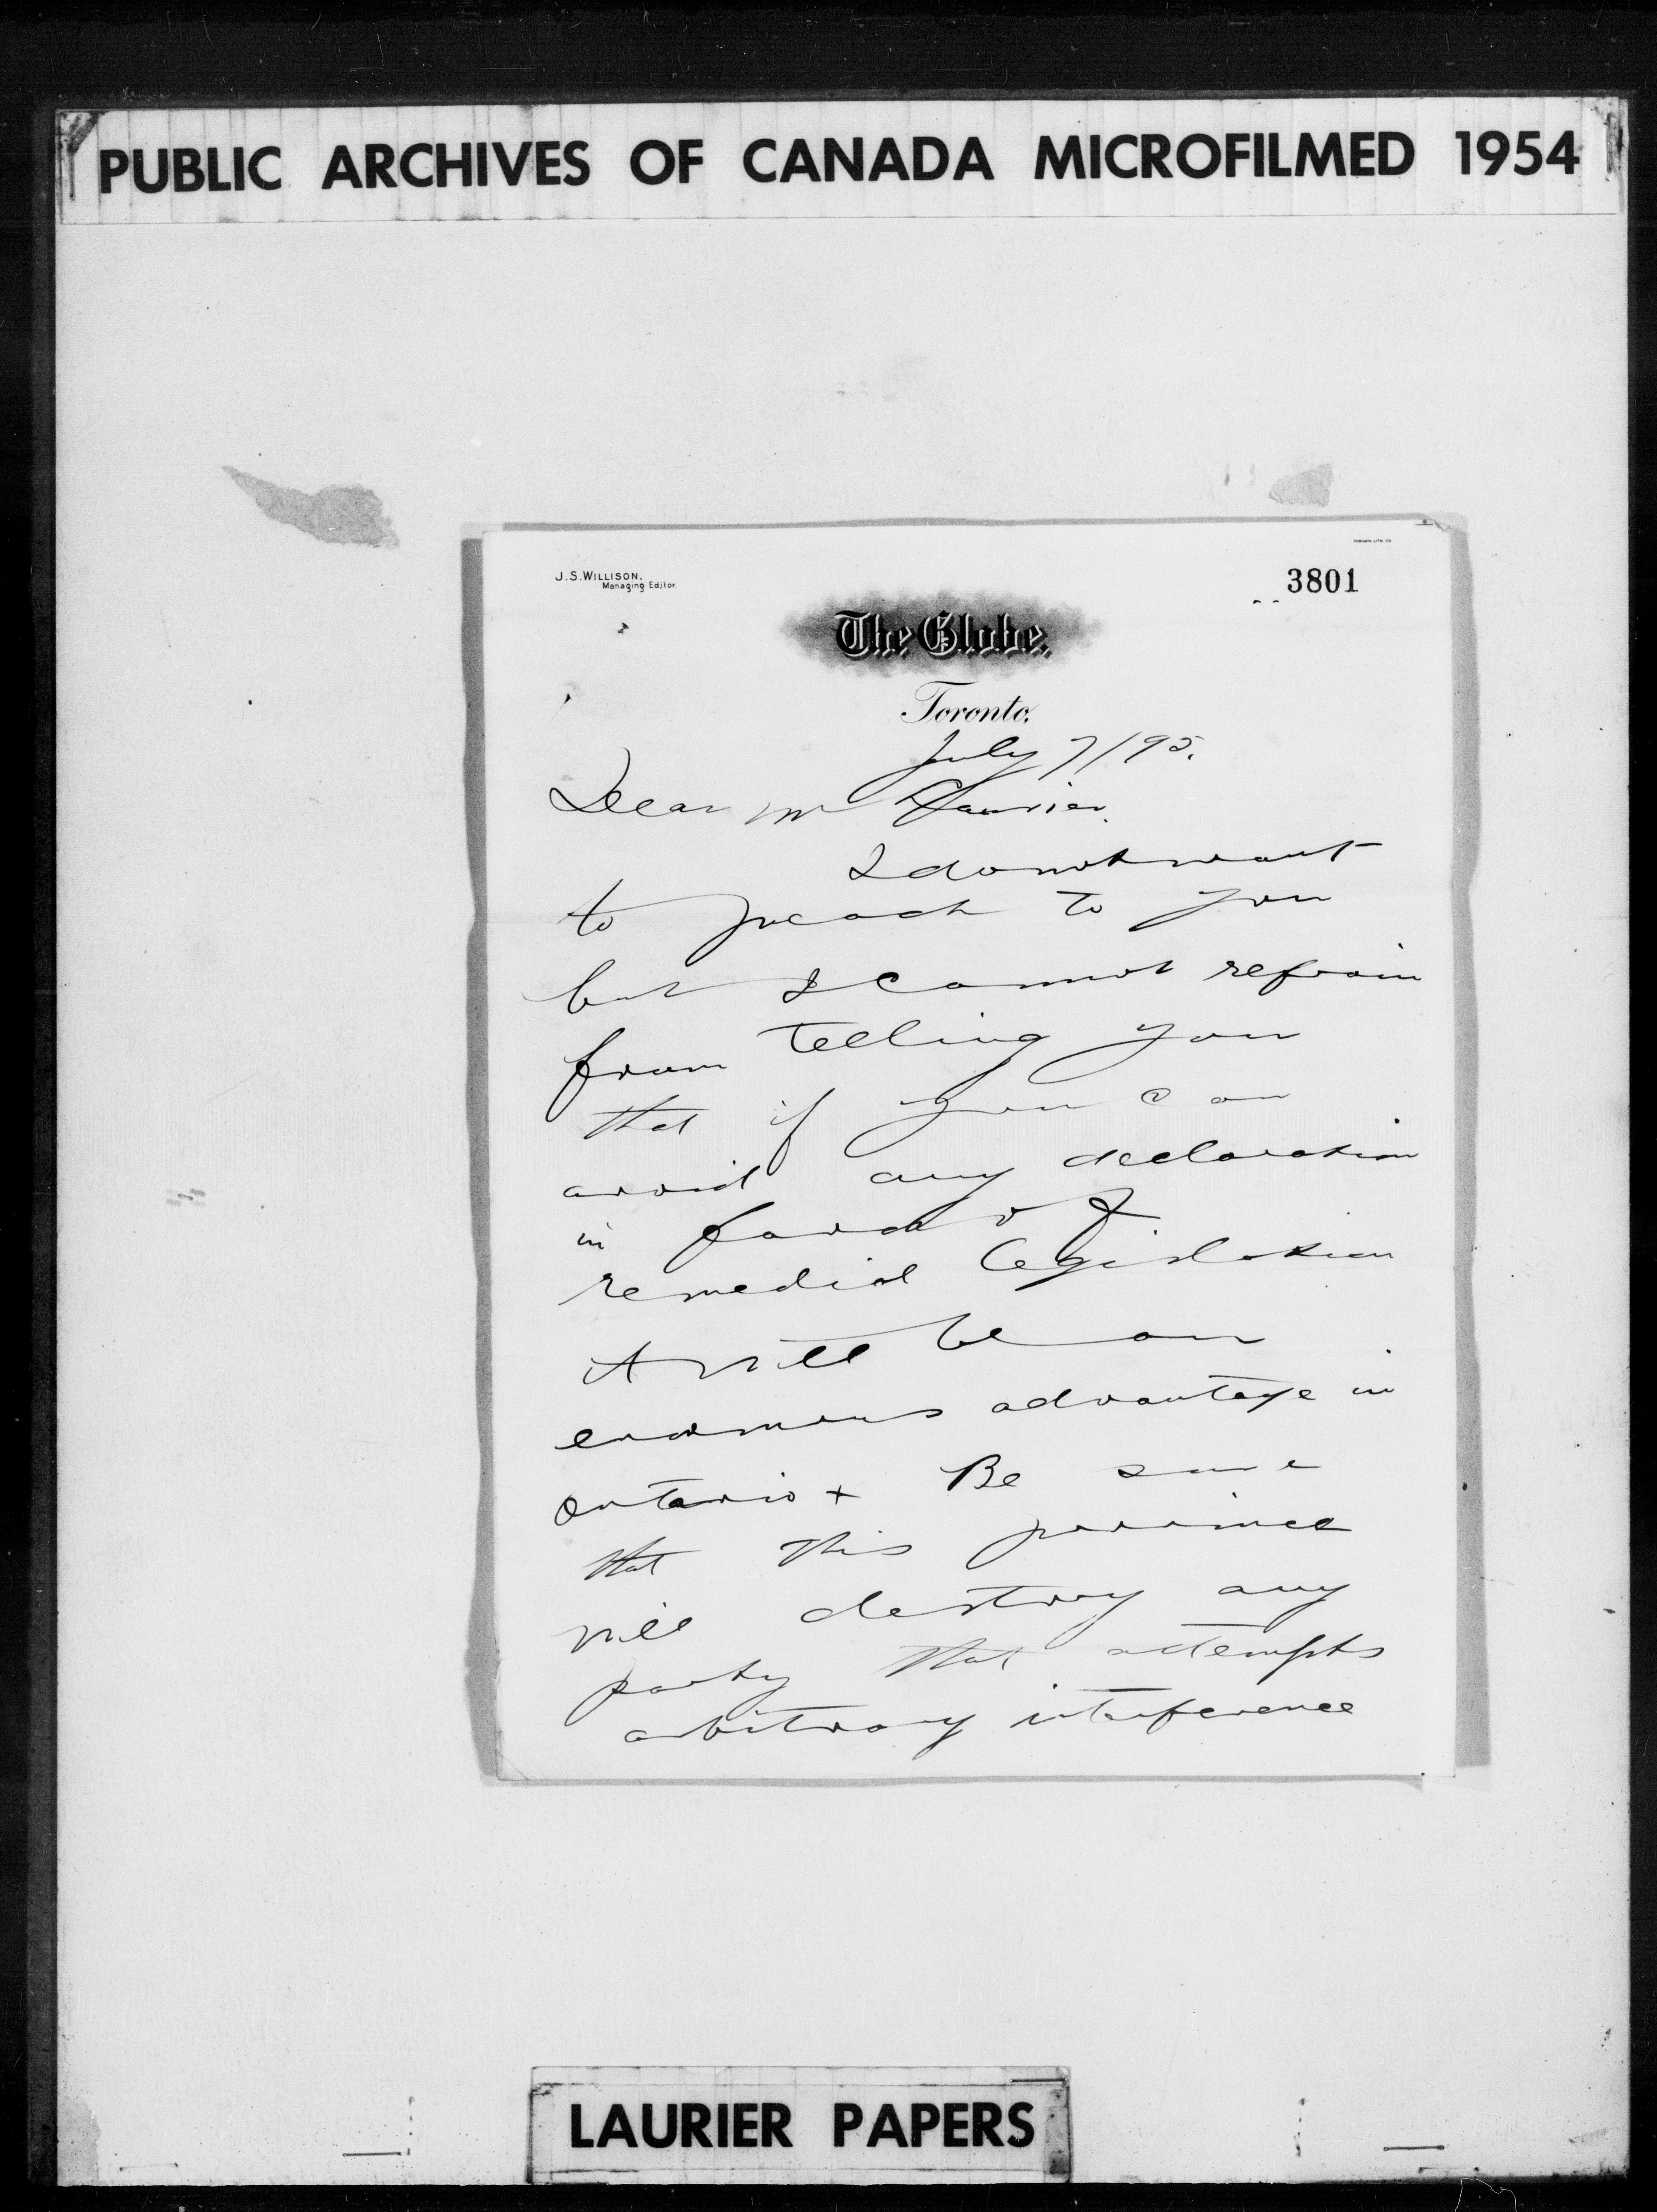 PUBLIC ARCHIVES OF CANADA MICROFILMED 1954
TORONTO LITH. CO.
J.S. WILLISON,
Managing Editor.
3801
The Globe.
Toronto,
July 7/95.
Dear Mr Laurier.
I do not want
to preach to you
but I cannot refrain
from telling you
that if you can
avoid any declaration
in favor of
remedial legislation
it will be an
enormous advantage in
Ontario + Be sure
that this province
will destroy any
party that attempts
arbitrary interference
LAURIER PAPERS